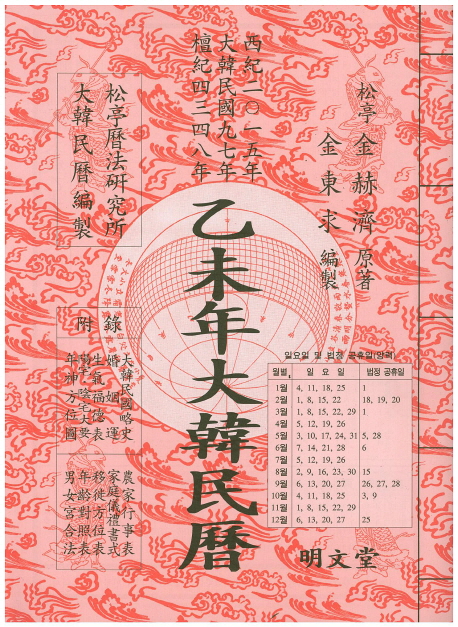 西紀二〇一五年
大韓民國九七年
檀紀四三四八年
松亭 金赫濟 原著
金東求 編製
松亭曆法硏究所
大韓民曆編製
乙未年大韓民曆
附錄
大韓民國略史
婚姻運
生氣福德表
陽宅陰宅大要
年神方位圖
農家行事表
家庭儀禮書式
移徙方位表
年齡對照表
男女宮合法
일요일 및 법정 공휴일(양력)
월별 일요일 법정 공휴일
1월 4, 11, 18, 25 1
2월 1, 8, 15, 22 18, 19, 20
3월 1, 8, 15, 22, 29 1
4월 5, 12, 19, 26
5월 3, 10, 17, 24, 31 5, 28
6월 7, 14, 21, 28 6
7월 5, 12, 19, 26
8월 2, 9, 16, 23, 30 15
9월 6, 13, 20, 27 26, 27, 28
10월 4, 11, 18, 25 3, 9
11월 1, 8, 15, 22, 29
12월 6, 13, 20, 27 25
明文堂